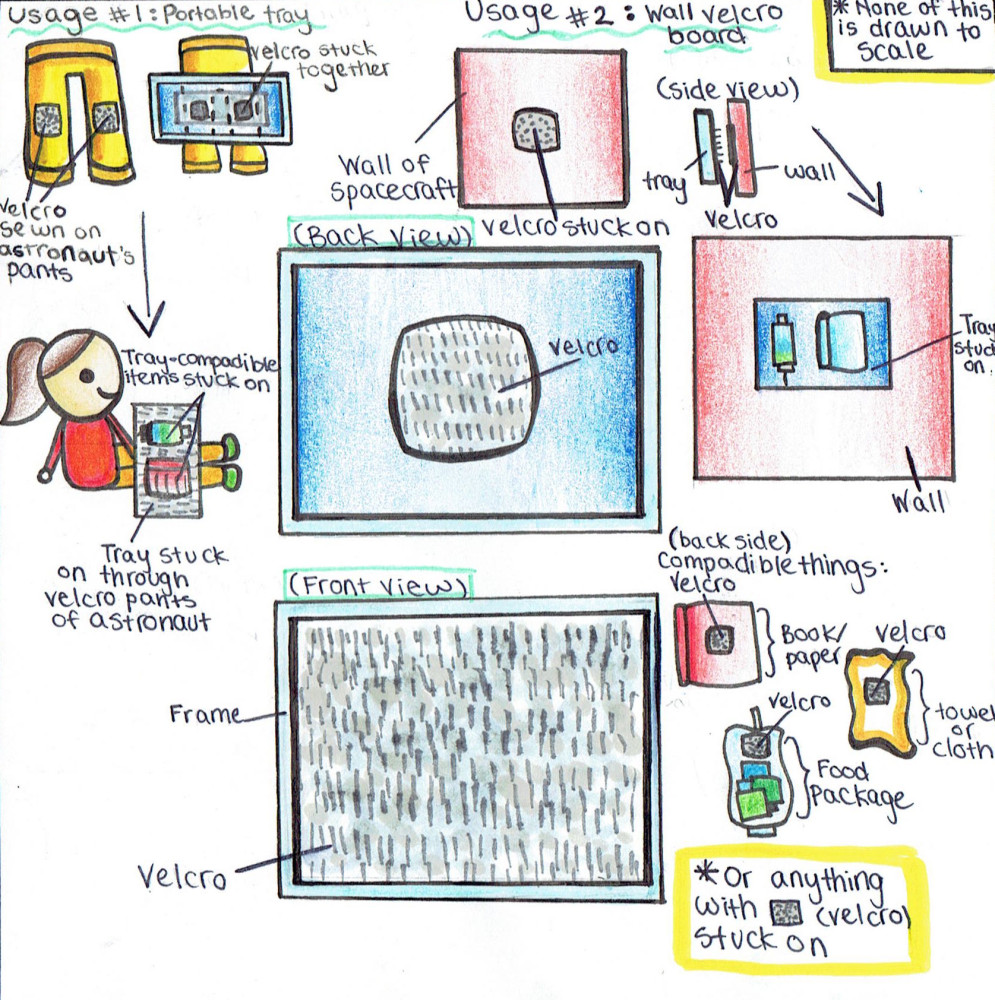 Usage #1: Portable tray
velcro stuck
together
Velcro
sewn on
astronaut's
pants
Tray-compadible
items stuck on
Tray stuck
on through
velcro pants
of astronaut
Usage #2: Wall velcro
board
* None of this
is drawn to
scale
Wall of
spacecraft
velcro stuck on
(side view)
tray
wall
velcro
Tray
stuck
on.
Wall
(Back View)
velcro
(Front View)
Frame
Velcro
(back side)
Compadible things:
velcro
Book/
paper
velcro
towel
or
cloth
velcro
Food
Package
*Or anything
with (velcro)
stuck on